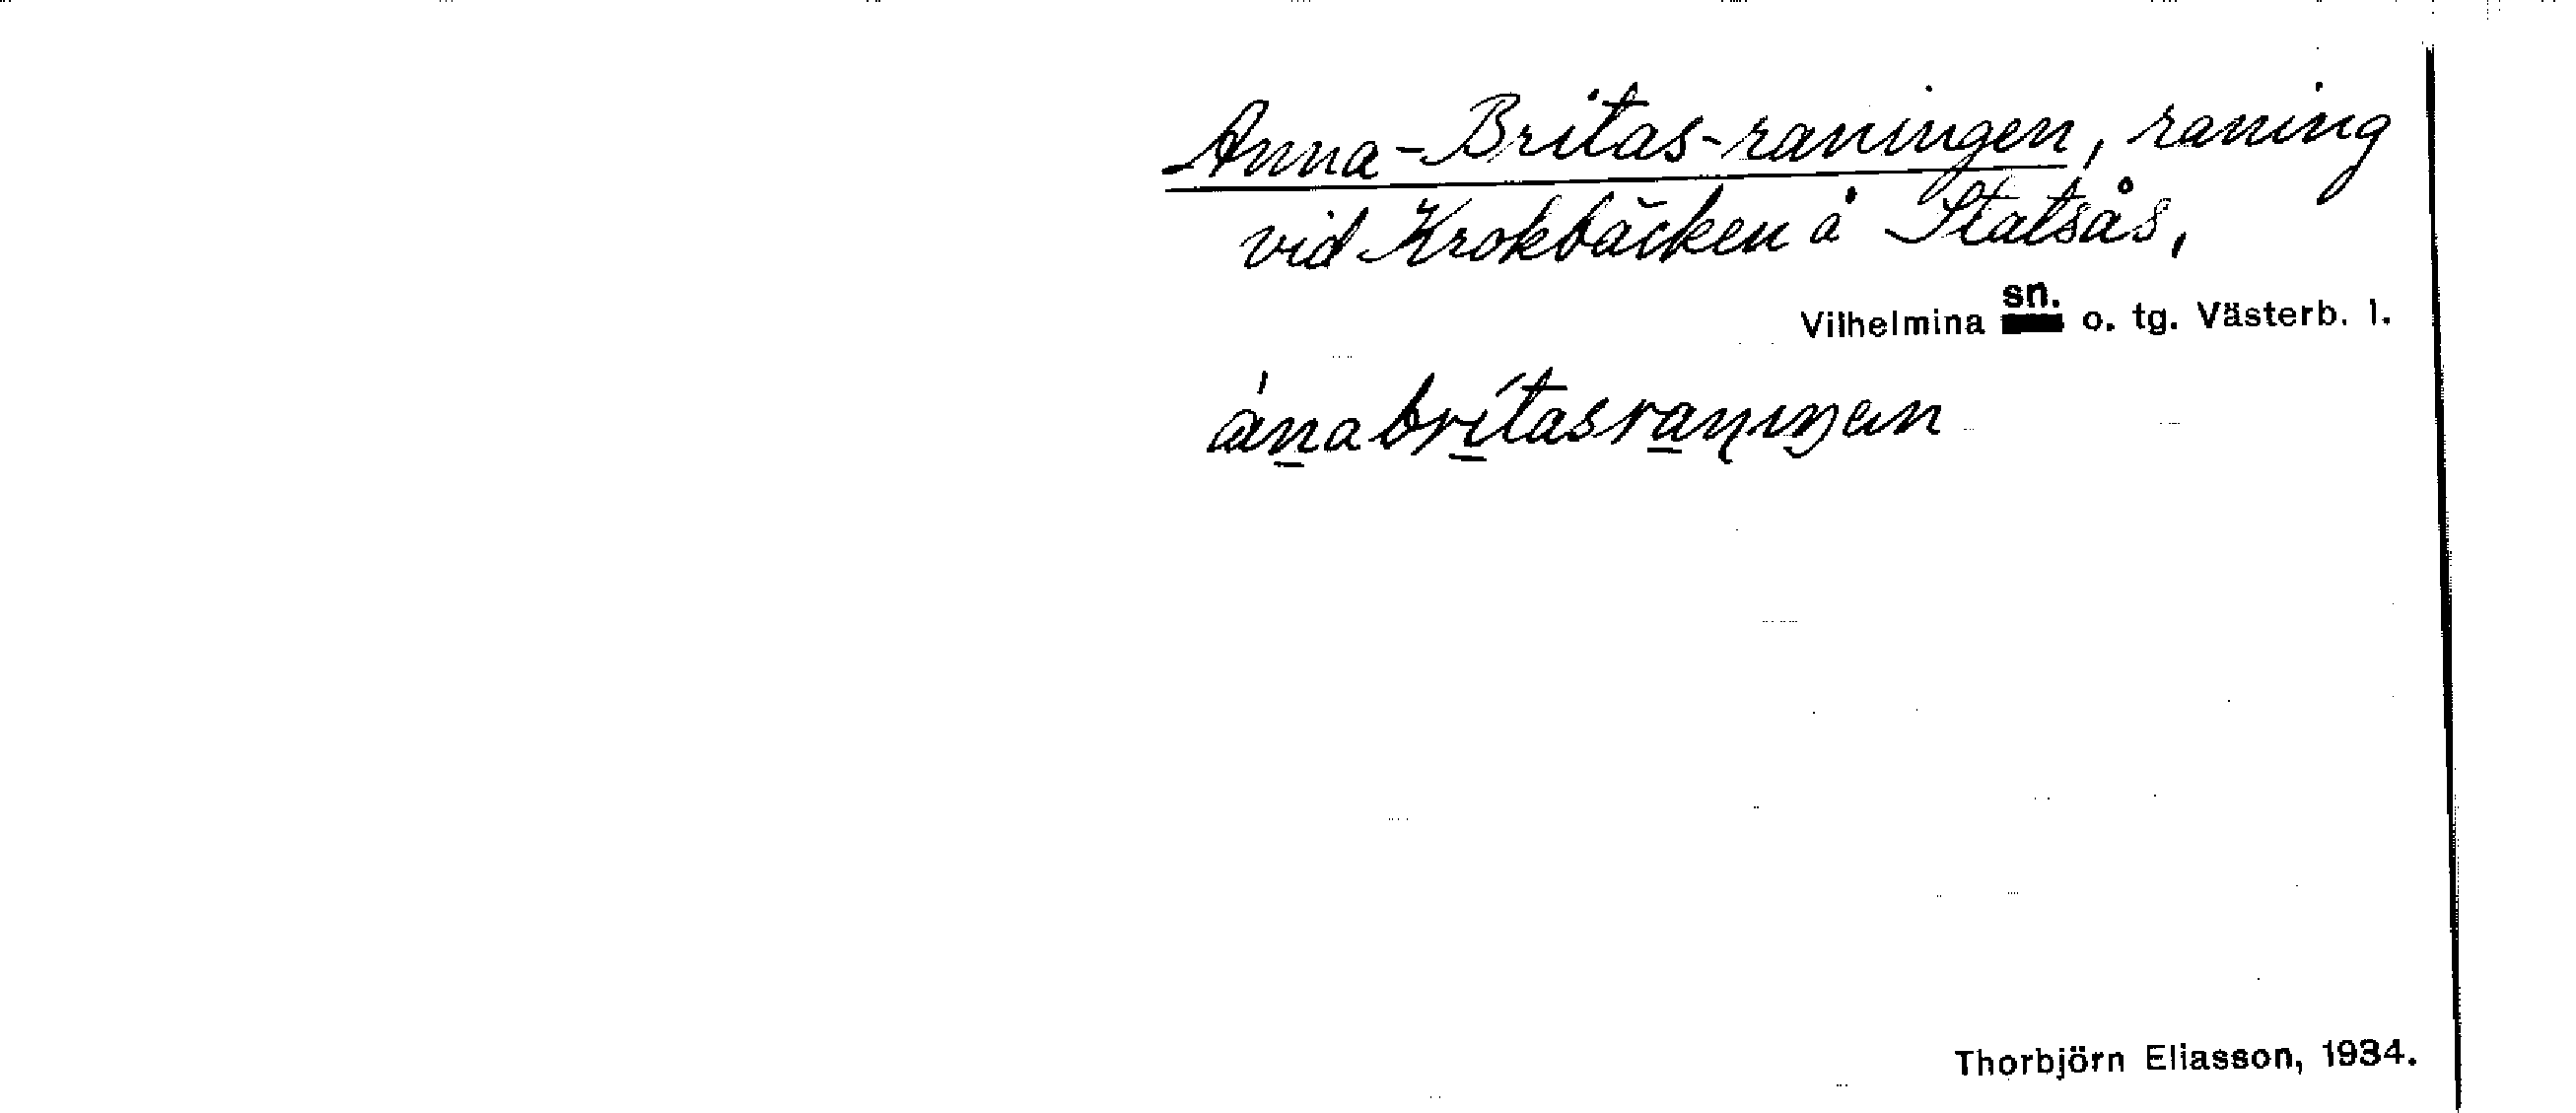 Anna-Britas-raningen, raning
vid Krokbäcken å Statsås,
Vilhelmina sn. o. tg. Västerb. l.
ánabrítasraniŋen
Thorbjörn Eliasson, 1934.